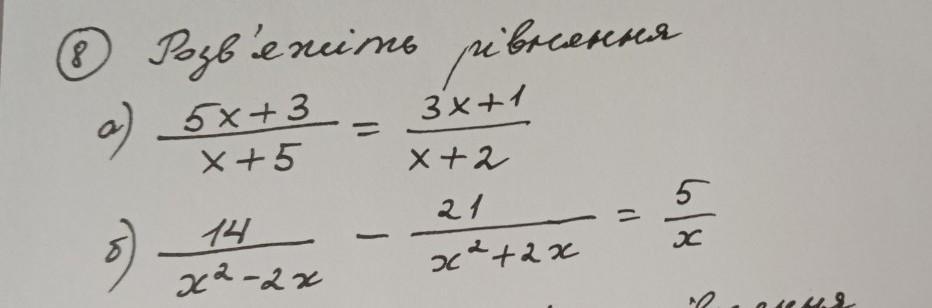 8 Розв'яжіть рівняння
а) (5x+3)/(x+5) = (3x+1)/(x+2)
б) 14/(x²-2x) - 21/(x²+2x) = 5/x